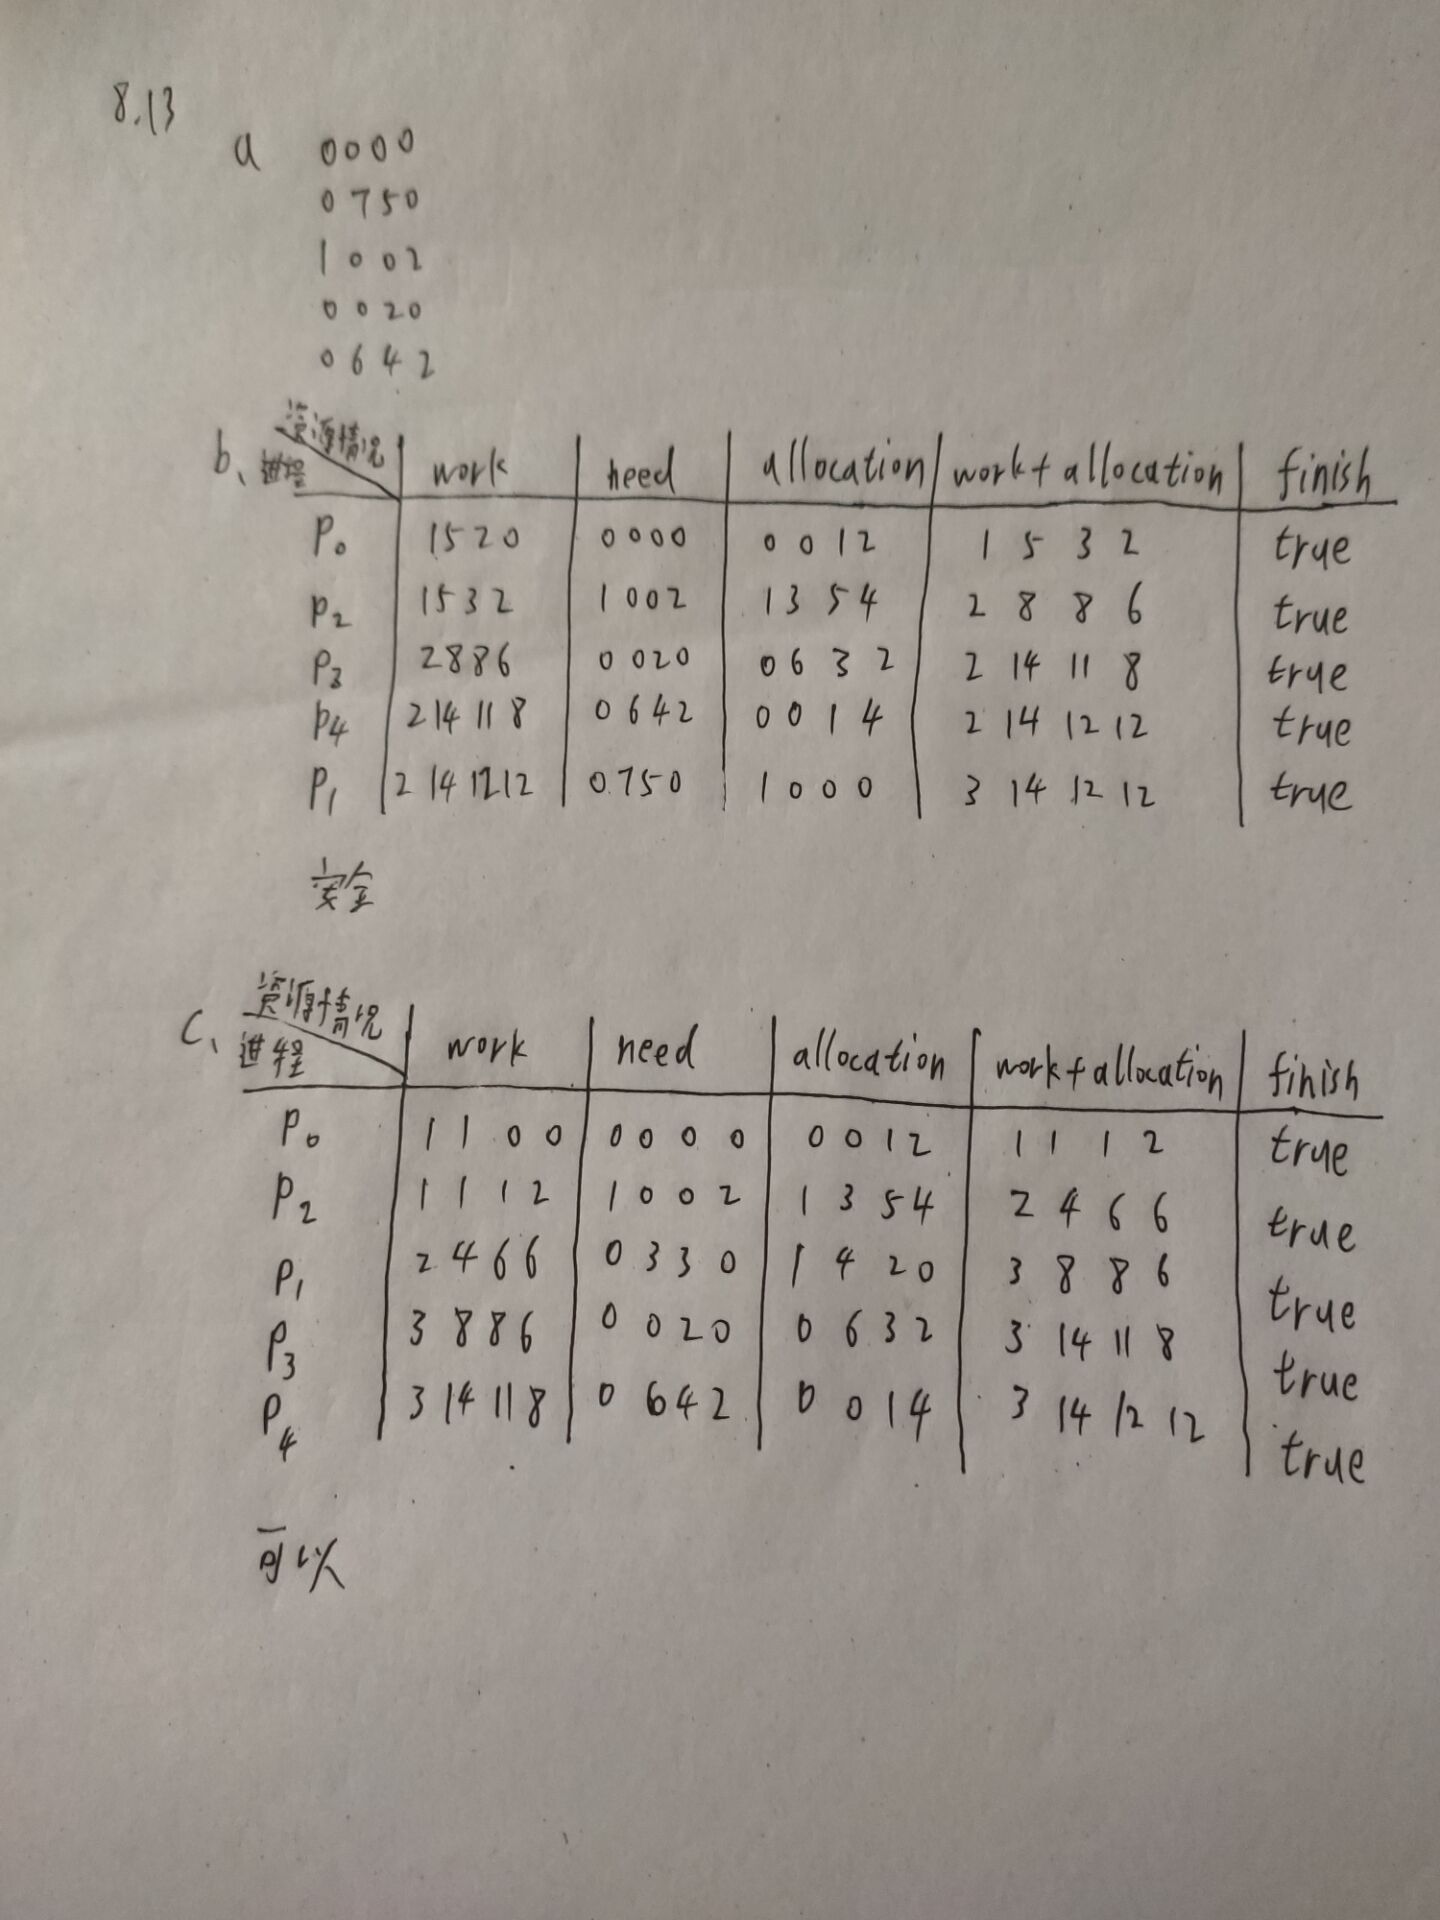 8.13
a 0000
0750
1002
0020
0642
b、 资源情况
进程 work need allocation work+allocation finish
P0 1520 0000 0012 1 5 3 2 true
P2 1532 1002 1354 2 8 8 6 true
P3 2886 0020 0632 2 14 11 8 true
P4 2 14 11 8 0642 0014 2 14 12 12 true
P1 2 14 12 12 0750 1000 3 14 12 12 true
安全
c、 资源情况
进程 work need allocation work+allocation finish
P0 1 1 0 0 0 0 0 0 0 0 1 2 1 1 1 2 true
P2 1 1 1 2 1 0 0 2 1 3 5 4 2 4 6 6 true
P1 2 4 6 6 0 3 3 0 1 4 2 0 3 8 8 6 true
P3 3 8 8 6 0 0 2 0 0 6 3 2 3 14 11 8 true
P4 3 14 11 8 0 6 4 2 0 0 1 4 3 14 12 12 true
可以